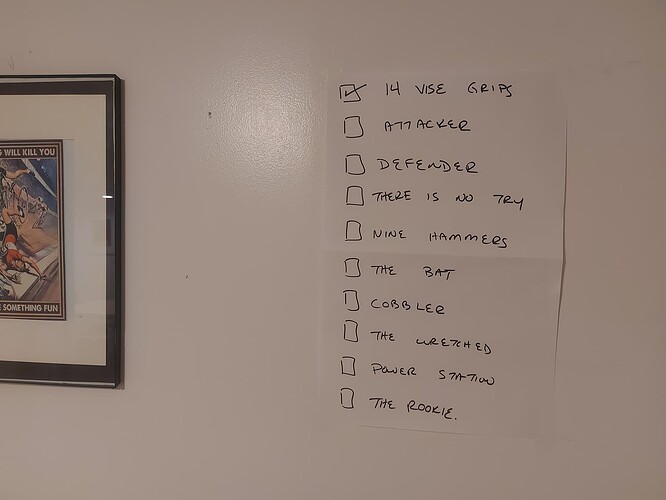 G WILL KILL YOU
E SOMETHING FUN
14 VISE GRIPS
ATTACKER
DEFENDER
THERE IS NO TRY
NINE HAMMERS
THE BAT
COBBLER
THE WRETCHED
POWER STATION
THE ROOKIE.